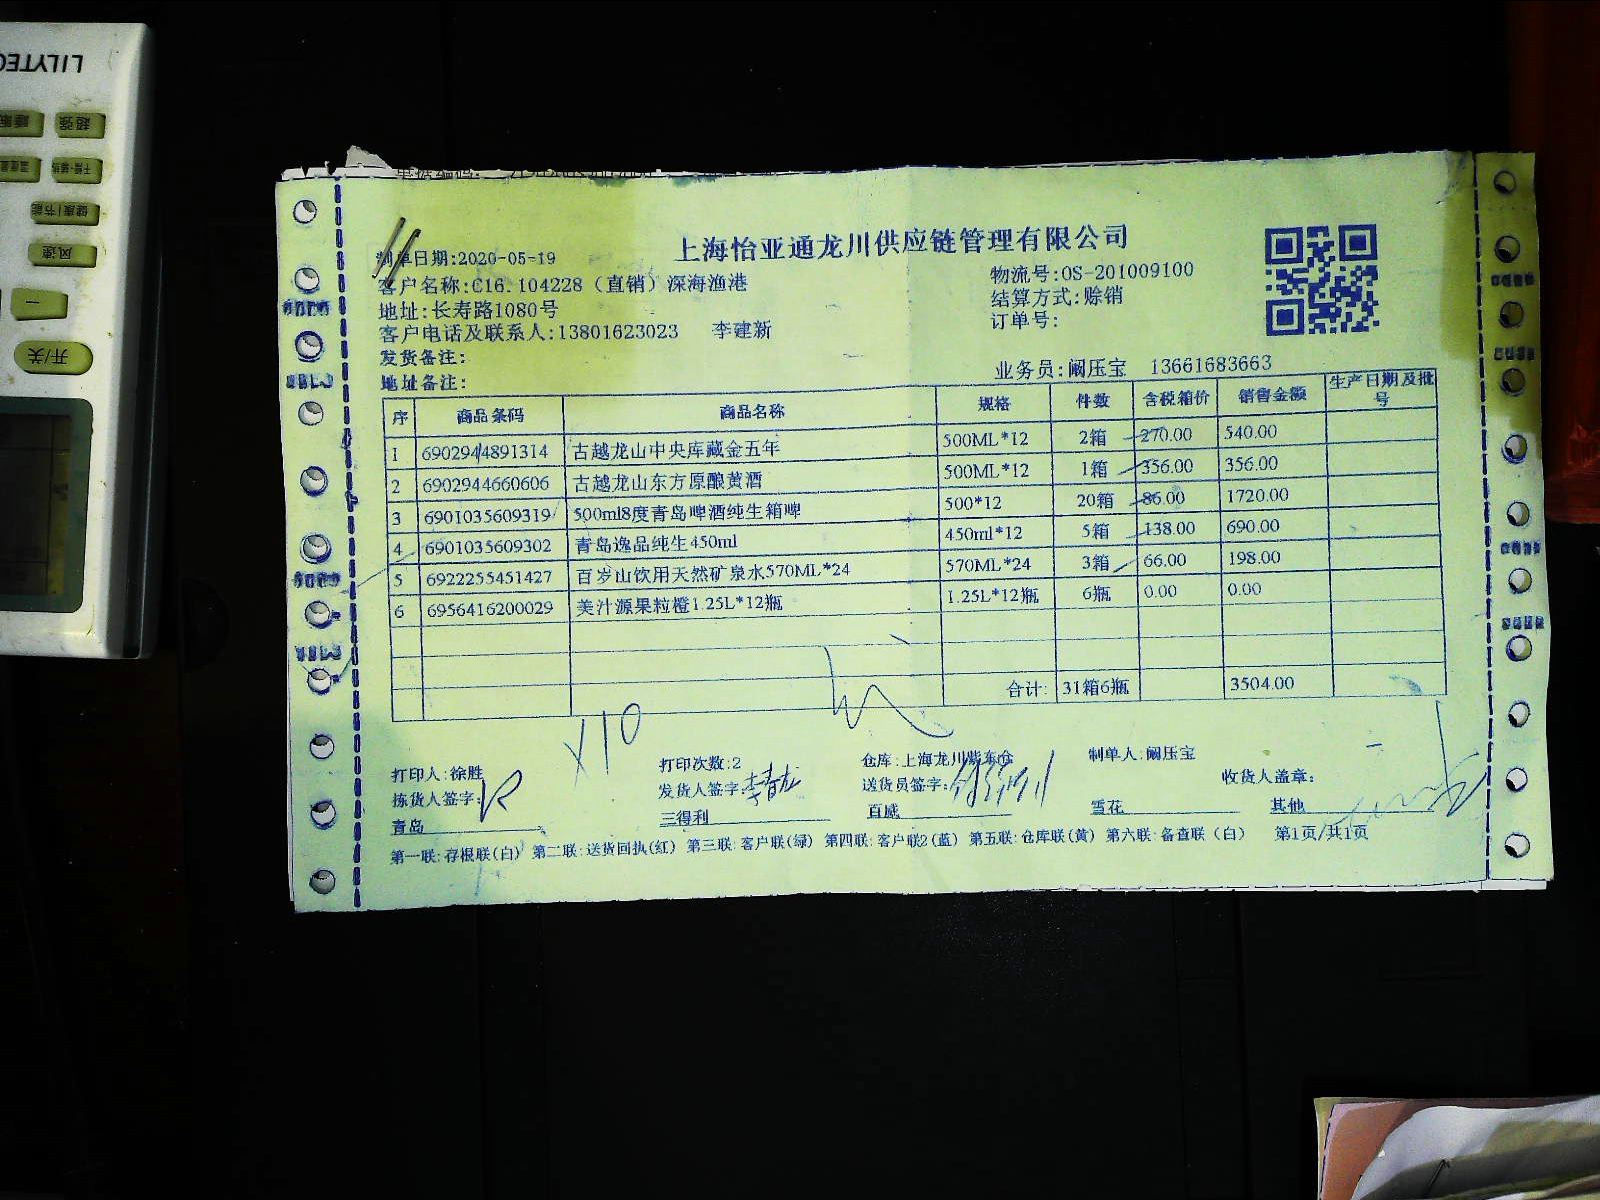 LILYTEC
超强
睡眠
干燥·辅热
温度显
健康|节能
风速
一
开/关
上海怡亚通龙川供应链管理有限公司
制单日期:2020-05-19
物流号:OS-201009100
客户名称:C16.104228（直销）深海渔港
结算方式:赊销
地址:长寿路1080号
订单号:
客户电话及联系人:13801623023 李建新
发货备注:
业务员:阚压宝 13661683663
地址备注:
序 商品条码 商品名称 规格 件数 含税箱价 销售金额 生产日期及批号
1 6902944891314 古越龙山中央库藏金五年 500ML*12 2箱 270.00 540.00
2 6902944660606 古越龙山东方原酿黄酒 500ML*12 1箱 356.00 356.00
3 6901035609319 500ml8度青岛啤酒纯生箱啤 500*12 20箱 86.00 1720.00
4 6901035609302 青岛逸品纯生450ml 450ml*12 5箱 138.00 690.00
5 6922255451427 百岁山饮用天然矿泉水570ML*24 570ML*24 3箱 66.00 198.00
6 6956416200029 美汁源果粒橙1.25L*12瓶 1.25L*12瓶 6瓶 0.00 0.00
合计: 31箱6瓶 3504.00
x10
打印人:徐胜 打印次数:2 仓库:上海龙川紫东仓 制单人:阚压宝
拣货人签字: 发货人签字:李春龙 送货员签字: 收货人盖章:
青岛 三得利 百威 雪花 其他
第一联:存根联(白) 第二联:送货回执(红) 第三联:客户联(绿) 第四联:客户联2(蓝) 第五联:仓库联(黄) 第六联:备查联（白） 第1页/共1页